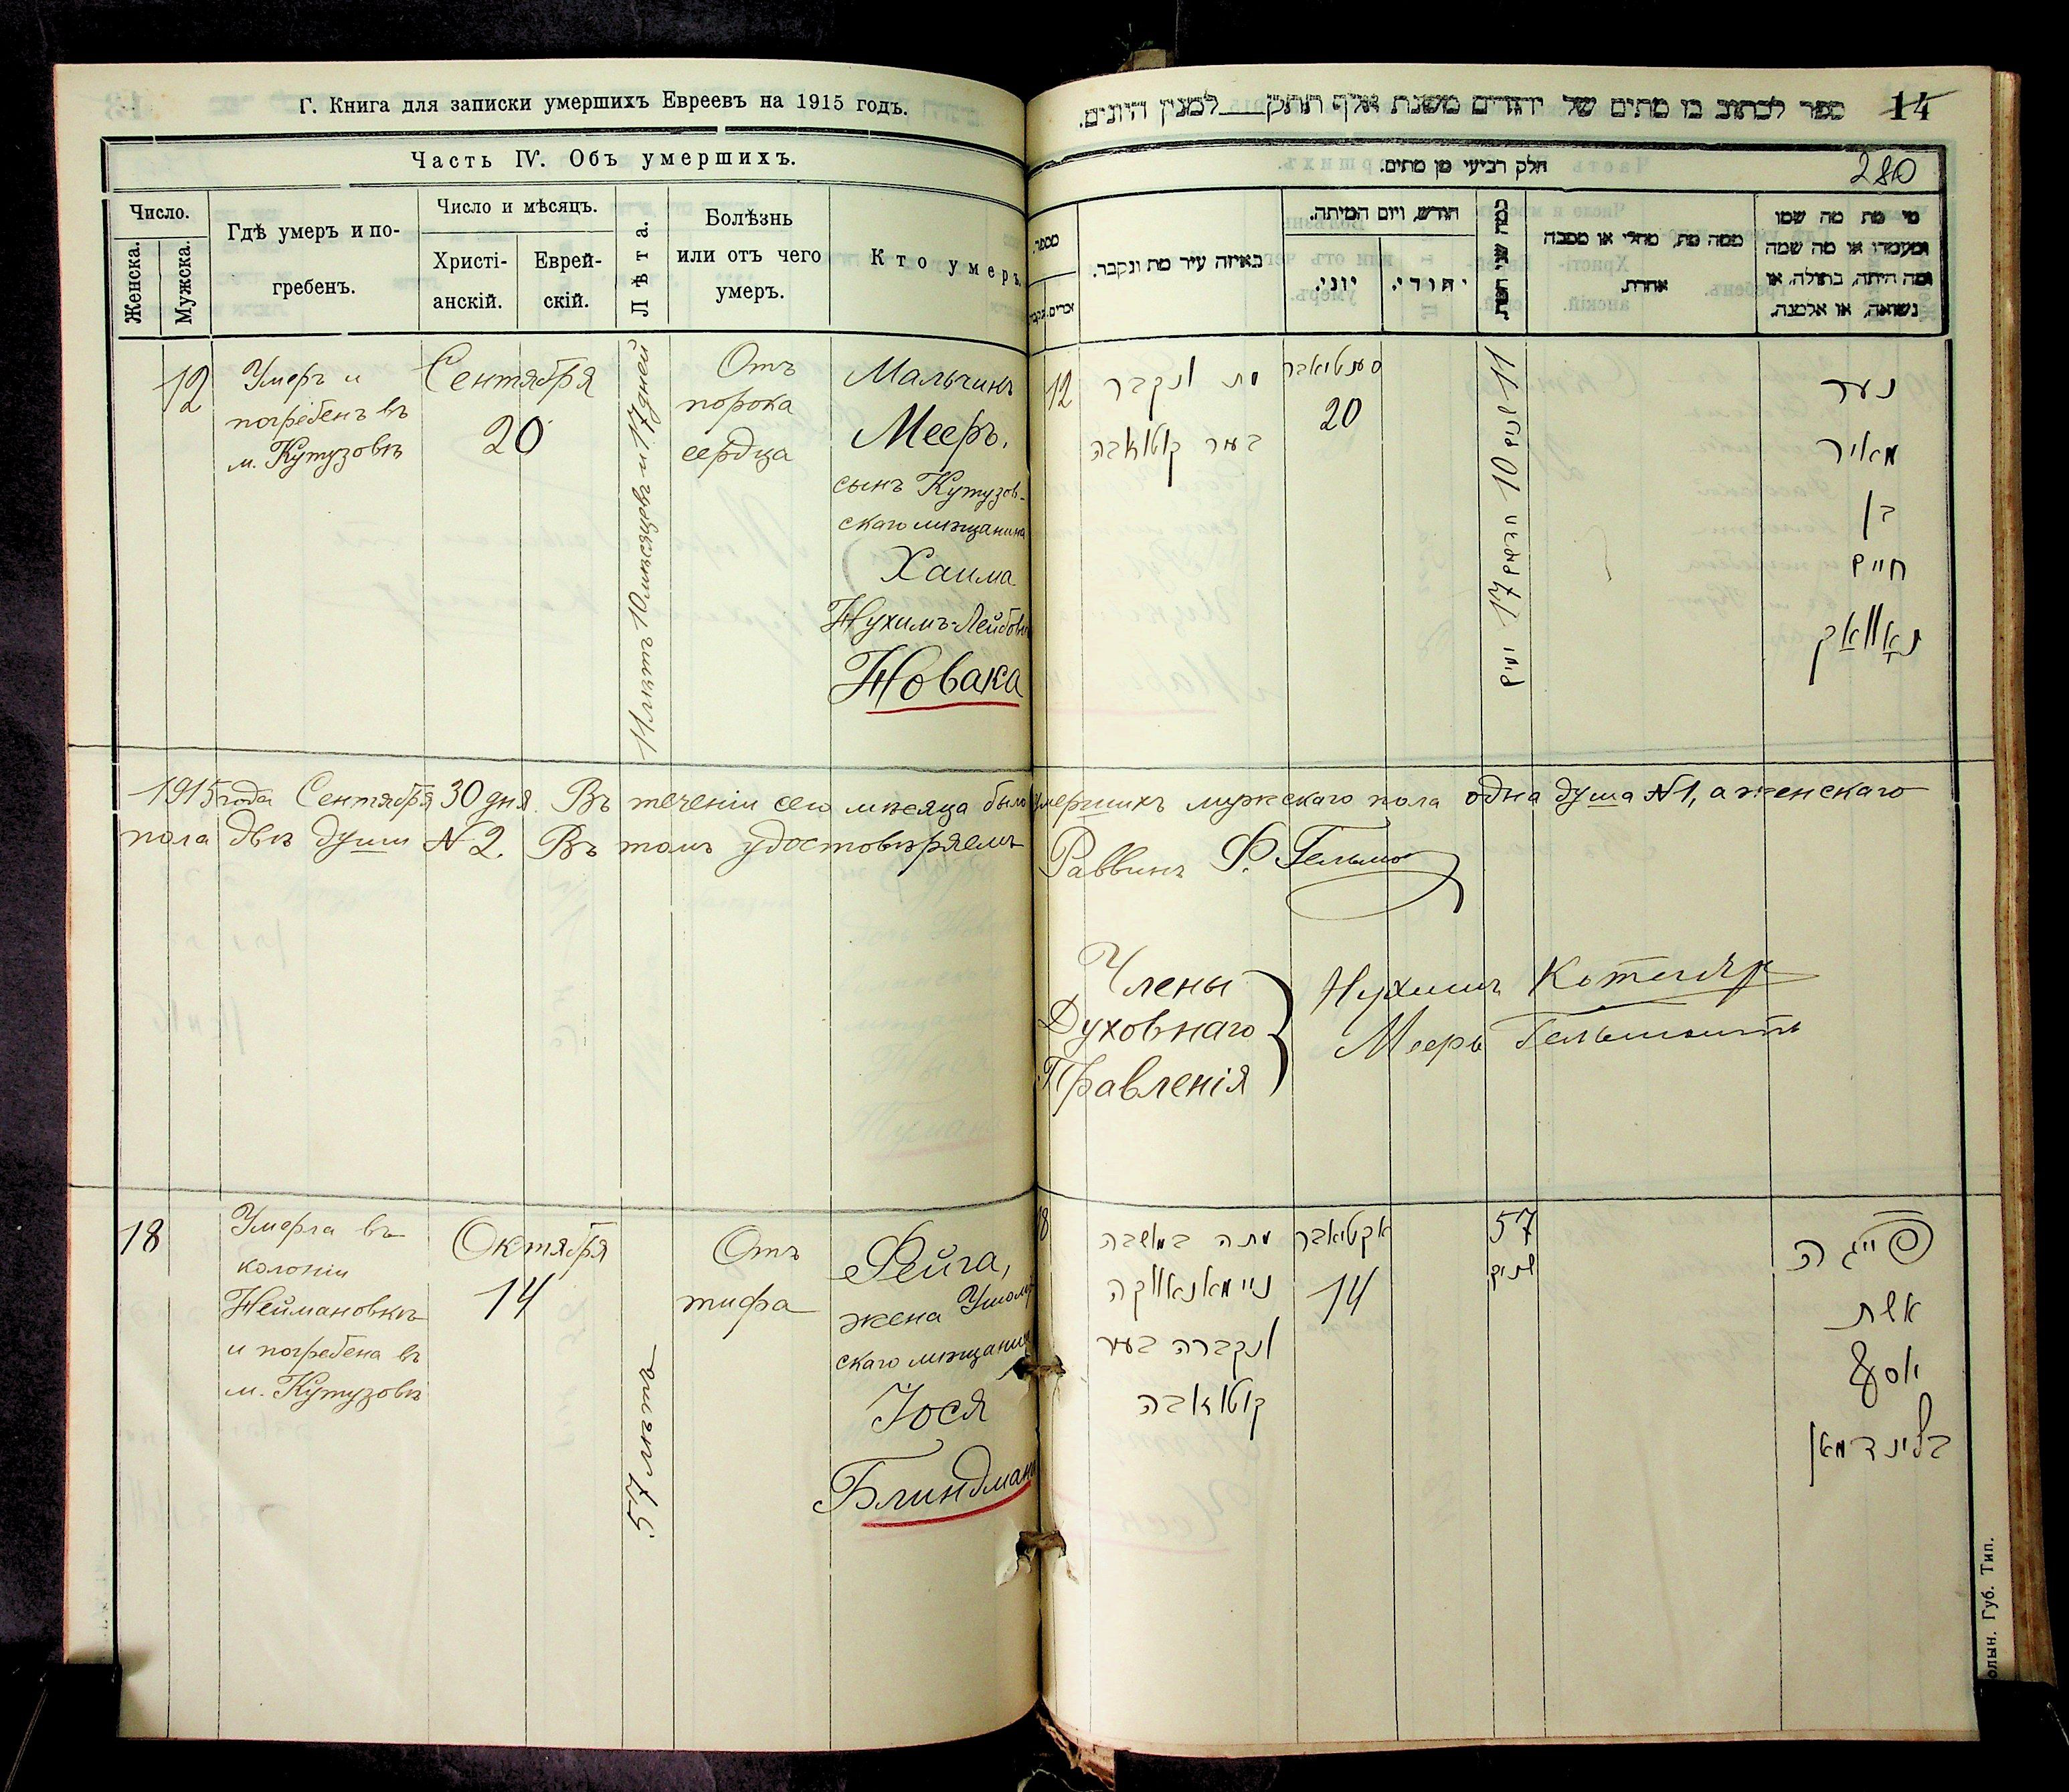 Г. Книга для записки умершихъ Евреевъ на 1915 годъ.
Часть IV. Объ умершихъ.
Число.
Женска.
Мужска.
Гдѣ умеръ и по-
гребенъ.
Число и мѣсяцъ.
Христі-
анскій.
Еврей-
скій.
Лѣта.
Болѣзнь
или отъ чего
умеръ.
Кто умеръ.
12
Умеръ и
погребенъ въ
м. Кутузовѣ
Сентября
20
11 лѣтъ 10 мѣсяцевъ и 17 дней
Отъ
порока
сердца
Мальчикъ
Мееръ,
сынъ Кутузов-
скаго мѣщанина
Хаима
Нухимъ-Лейбов
Новака
1915 года Сентября 30 дня. Въ теченіи сего мѣсяца было умершихъ мужскаго пола одна душа №1, а женскаго
пола двѣ души №2. Въ томъ удостовѣряемъ
18
Умерла въ
колоніи
Неймановкѣ
и погребена въ
м. Кутузовѣ
Октября
14
57 лѣтъ
Отъ
тифа
Фейга,
жена
скаго мѣщанина
Іося
Блиндмана
ספר לכתוב בו מתים של יהודים משנת אלף תתק___למנין היונים.
14
280
חלק רביעי מן מתים.
מספר.
זכרים. נקבות
באיזה עיר מת ונקבר.
חודש, ויום המיתה.
יוני.
יהודי.
כמה שני המת
ממה מת, מחלי או מסבה
אחרת.
מי מת מה שמו
ומעמדו או מה שמה
ומה היתה, בתולה, או
נשואה, או אלמנה.
12
מת ונקבר
בעיר קוטוזאבה
סעפטיאבר
20
11 שנים 10 חדשים 17 ימים
נער
מאיר
בן
חיים
נאוואק
Раввинъ Ф.
Члены
Духовнаго
Правленія
Нухимъ Котляр
Мееръ
18
מתה במאשבה
ניימאנאווקה
ונקברה בעיר
קוטוזאבה
אקטיאבר
14
57
שנים
פייגה
אשת
יוסף
בלינדמאן
олын. Губ. Тип.